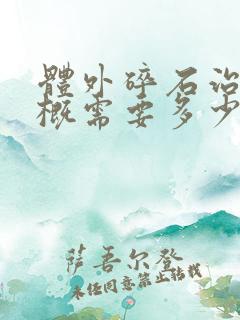 體外碎石治
概需要多少
萨吾尔登
未经同意禁止转载